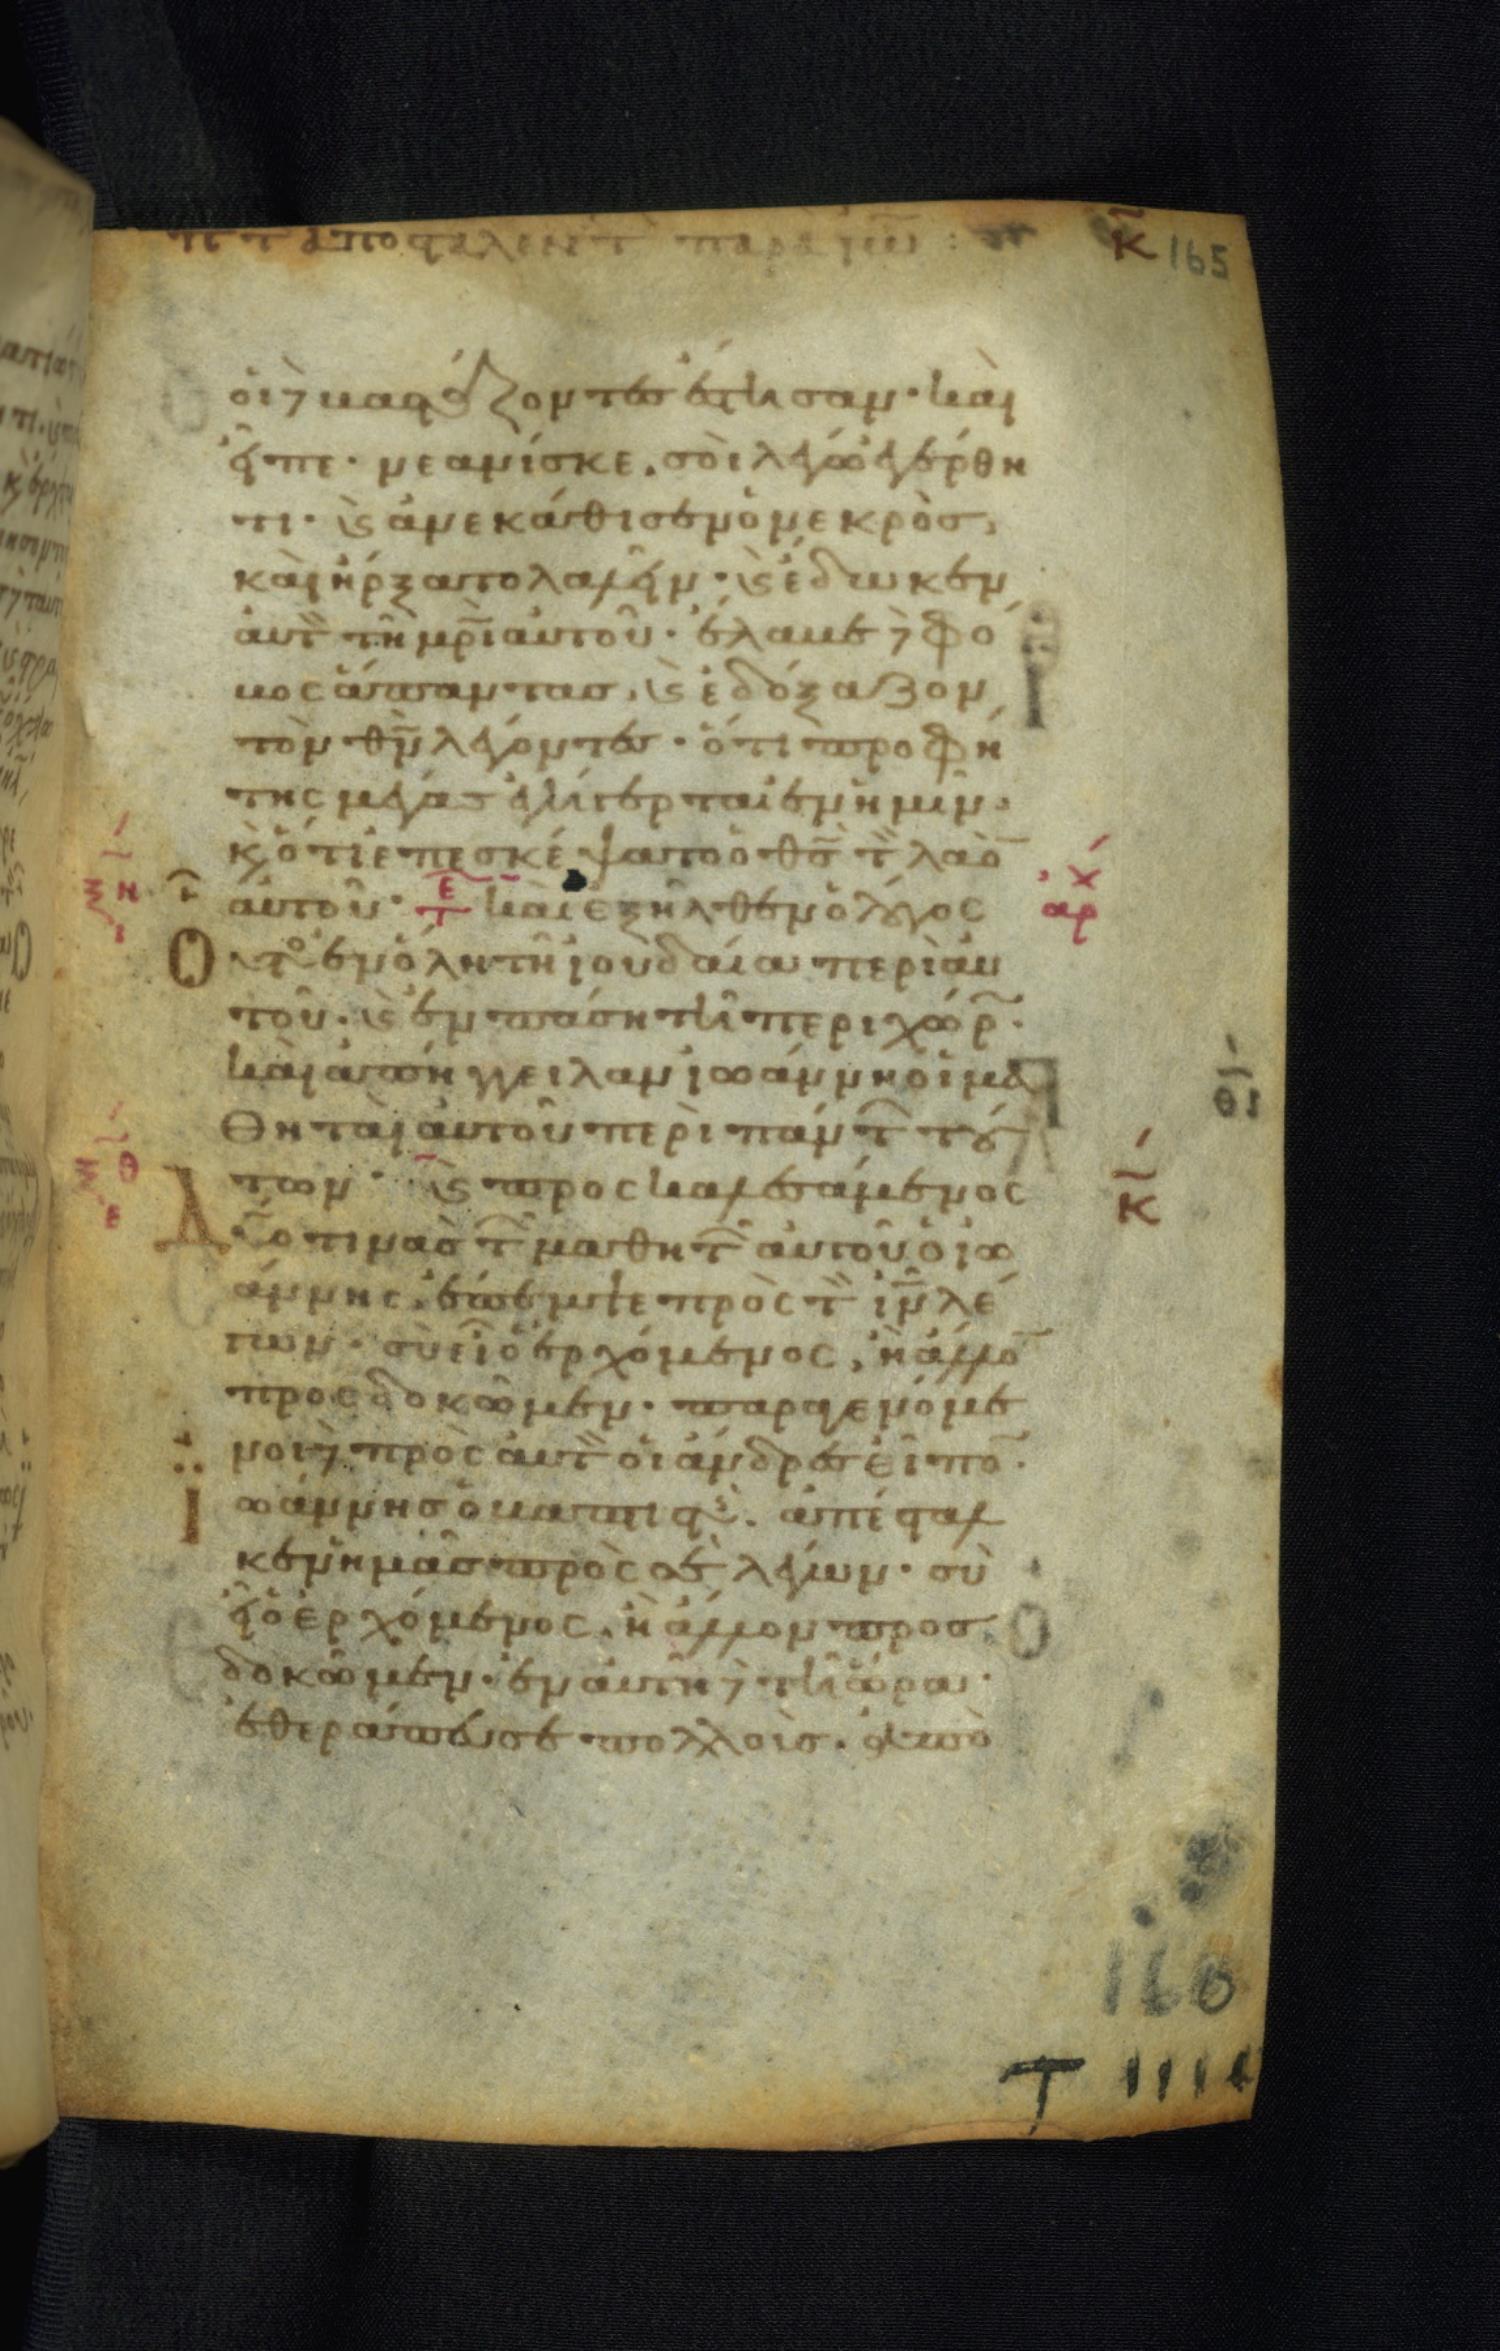 τι τ αποσταλέντ παρα ιω : κ 165
οἱ δὲ βαστάζοντες ἔστησαν· καὶ
εἶπε· νεανίσκε, σοὶ λέγω ἐγέρθη
τι· καὶ ἀνεκάθισεν ὁ νεκρὸσ,
καὶ ἤρξατο λαλεῖν· καὶ ἔδωκεν
αὐτὸν τῆ μρὶ αὐτοῦ· ἔλαβε δὲ φό
βος ἅπαντασ, καὶ ἐδόξαζον
τὸν θν λέγοντες· ὅτι προφή
της μέγασ ἐγήγερται ἐν ἡμῖν·
κ ὅτι ἐπεσκέψατο ὁ θς τὸν λαὸ
αὐτοῦ· τε καὶ ἐξῆλθεν ὁ λόγος
Οὗτος ἐν ὅλη τῆ ἰουδαία περὶ αυ
τοῦ· καὶ ἐν πάση τῆ περιχώρ·
καὶ ἀπήγγειλαν ἰωάννη οἱ μα
θηταὶ αὐτοῦ περὶ πάντ τού
των· καὶ προσκαλεσάμενος
Δύο τινὰσ τῶν μαθητῶν αὐτοῦ ὁ ἰω
άννης, ἔπεμψε πρὸς τὸν ιν λέ
γων· σὺ εἶ ὁ ἐρχόμενος, ἢ ἄλλο
προσδοκῶμεν· παραγενόμε
νοι δὲ πρὸς αὐτὸν οἱ ἄνδρες εἶπο·
Ἰωάννησ ὁ βαπτιστὴς. ἀπέσταλ
κεν ἡμᾶσ πρὸς σὲ λέγων· σὺ
εἶ ὁ ἐρχόμενος, ἢ ἄλλον προσ
δοκῶμεν· ἐν αὐτῆ δὲ τῆ ὥρα·
ἐθεράπευσε πολλοὺσ. ἀπὸ
ξη
ι
αρχ
ξθ
ε
κ
θι
160
T 1111